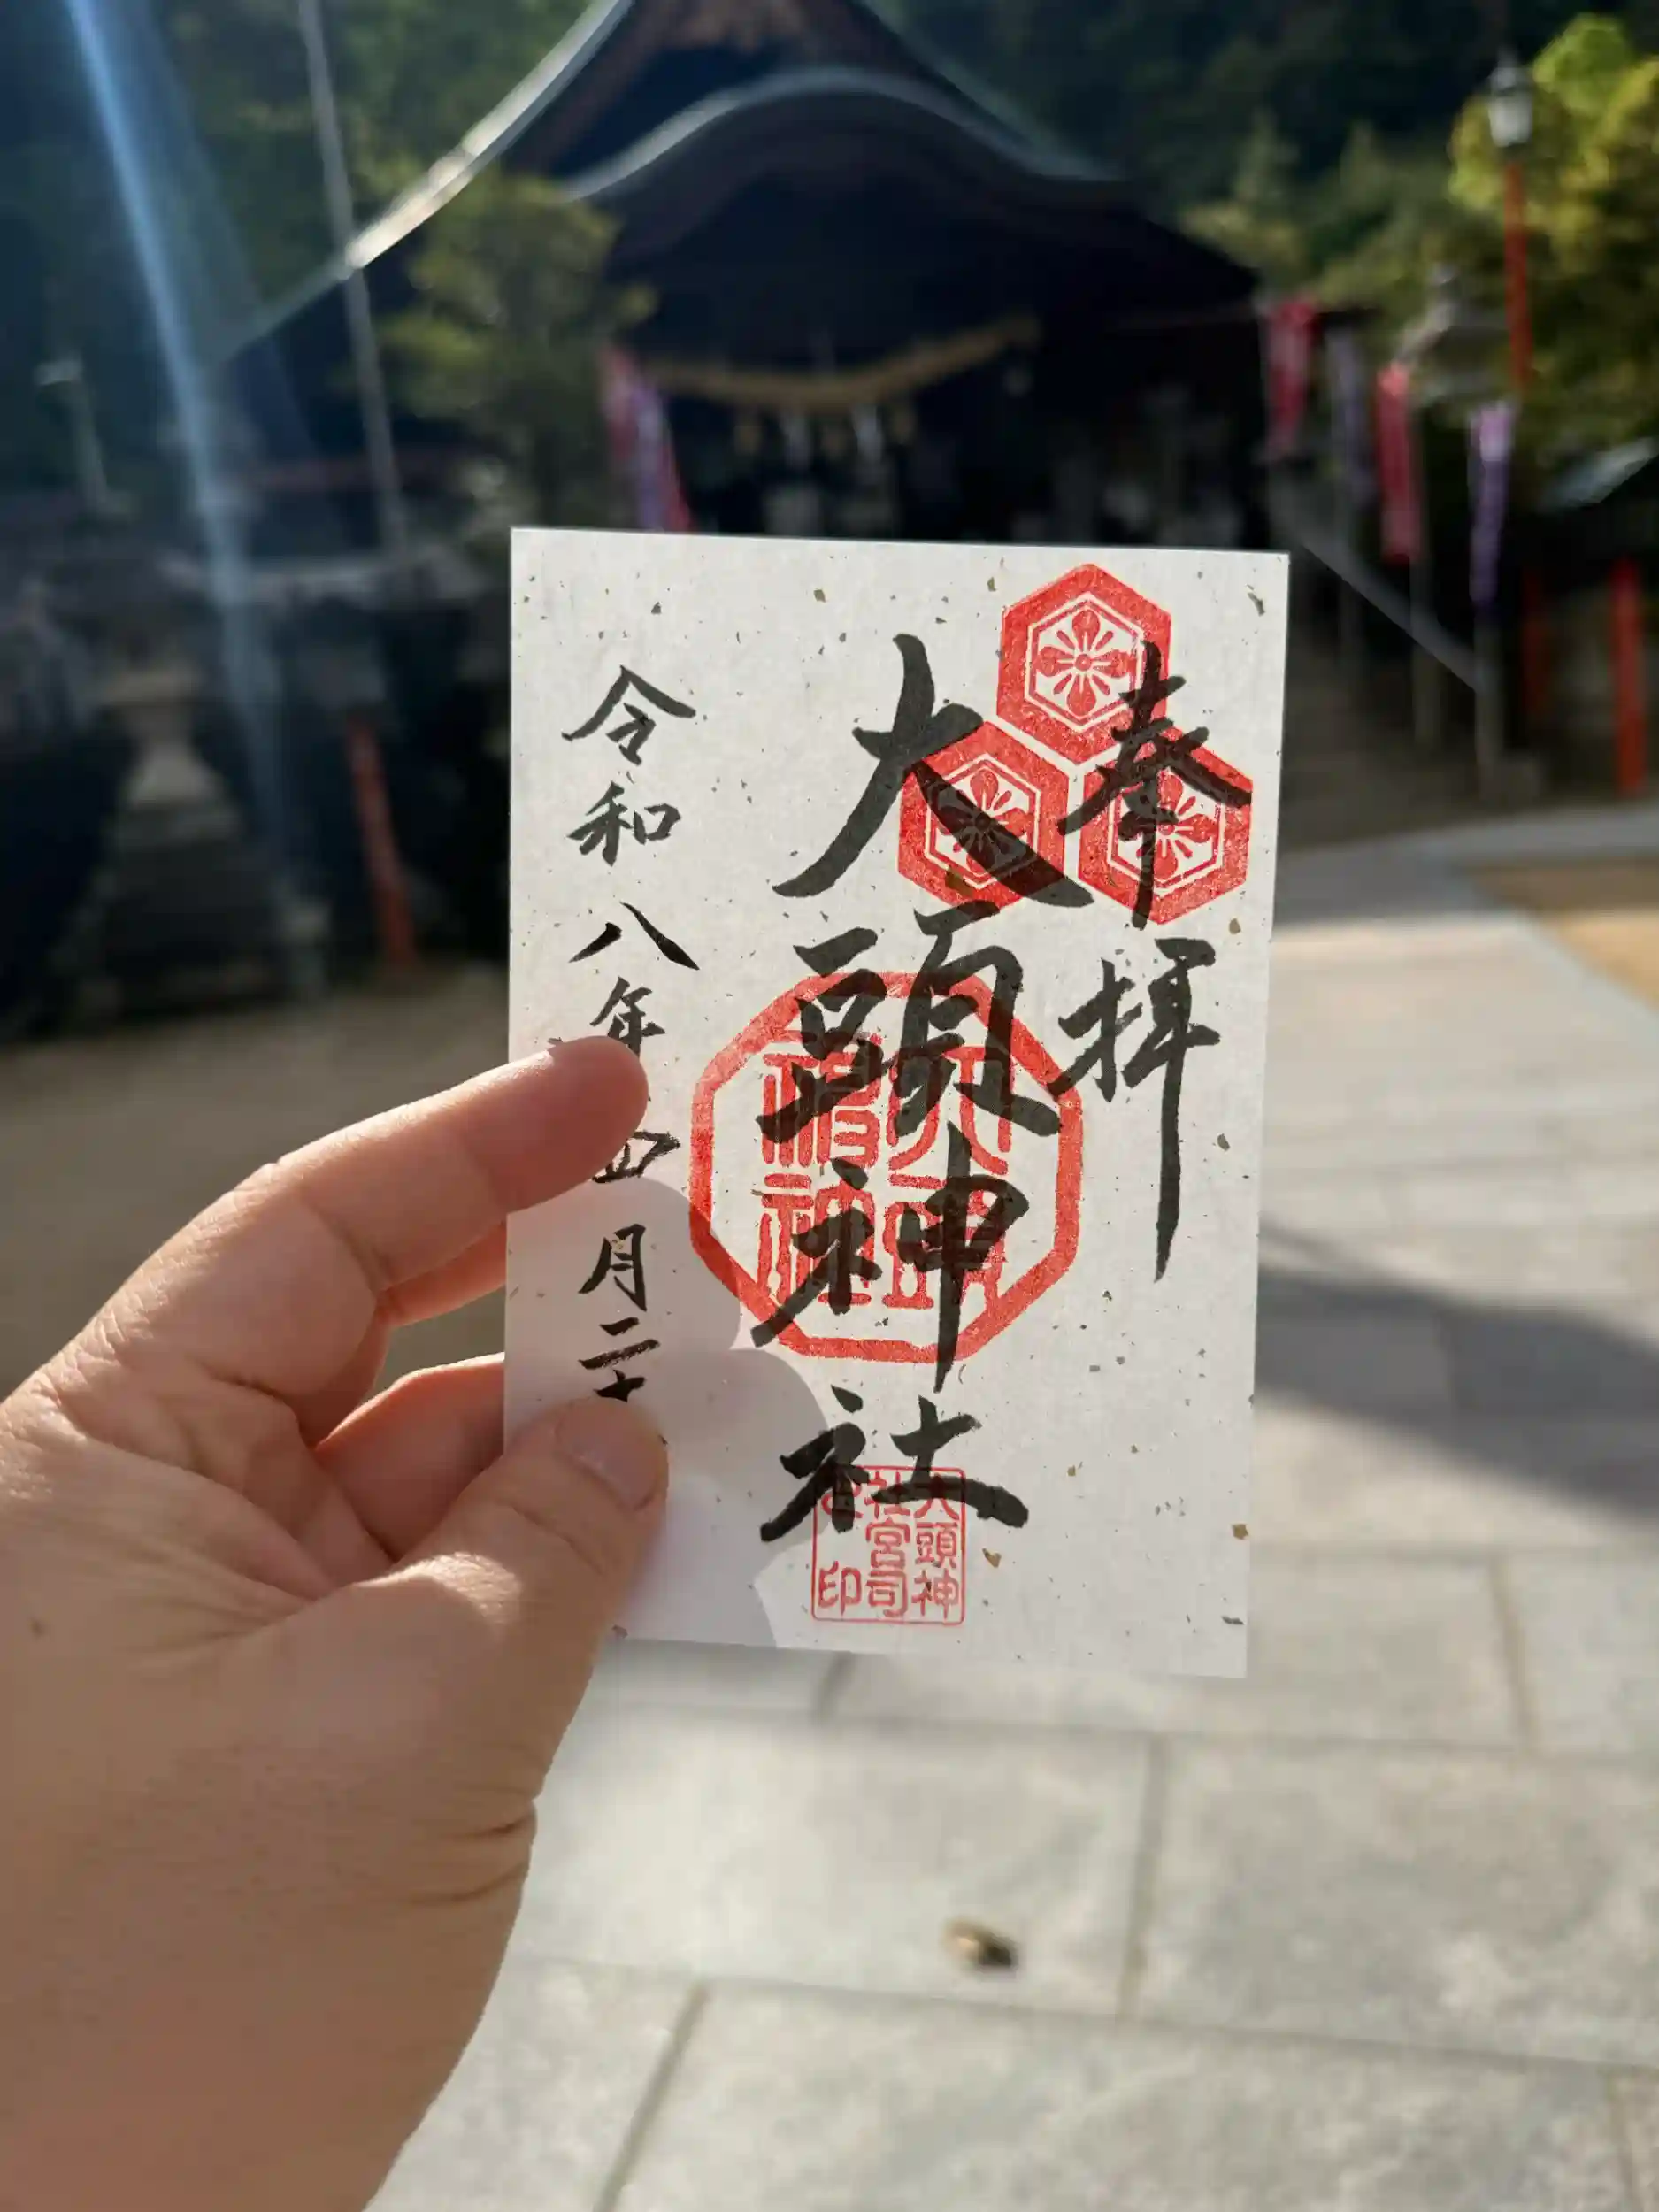 奉拝
大頭神社
大頭神社
大頭神
社宮司
印
令和八年四月二十